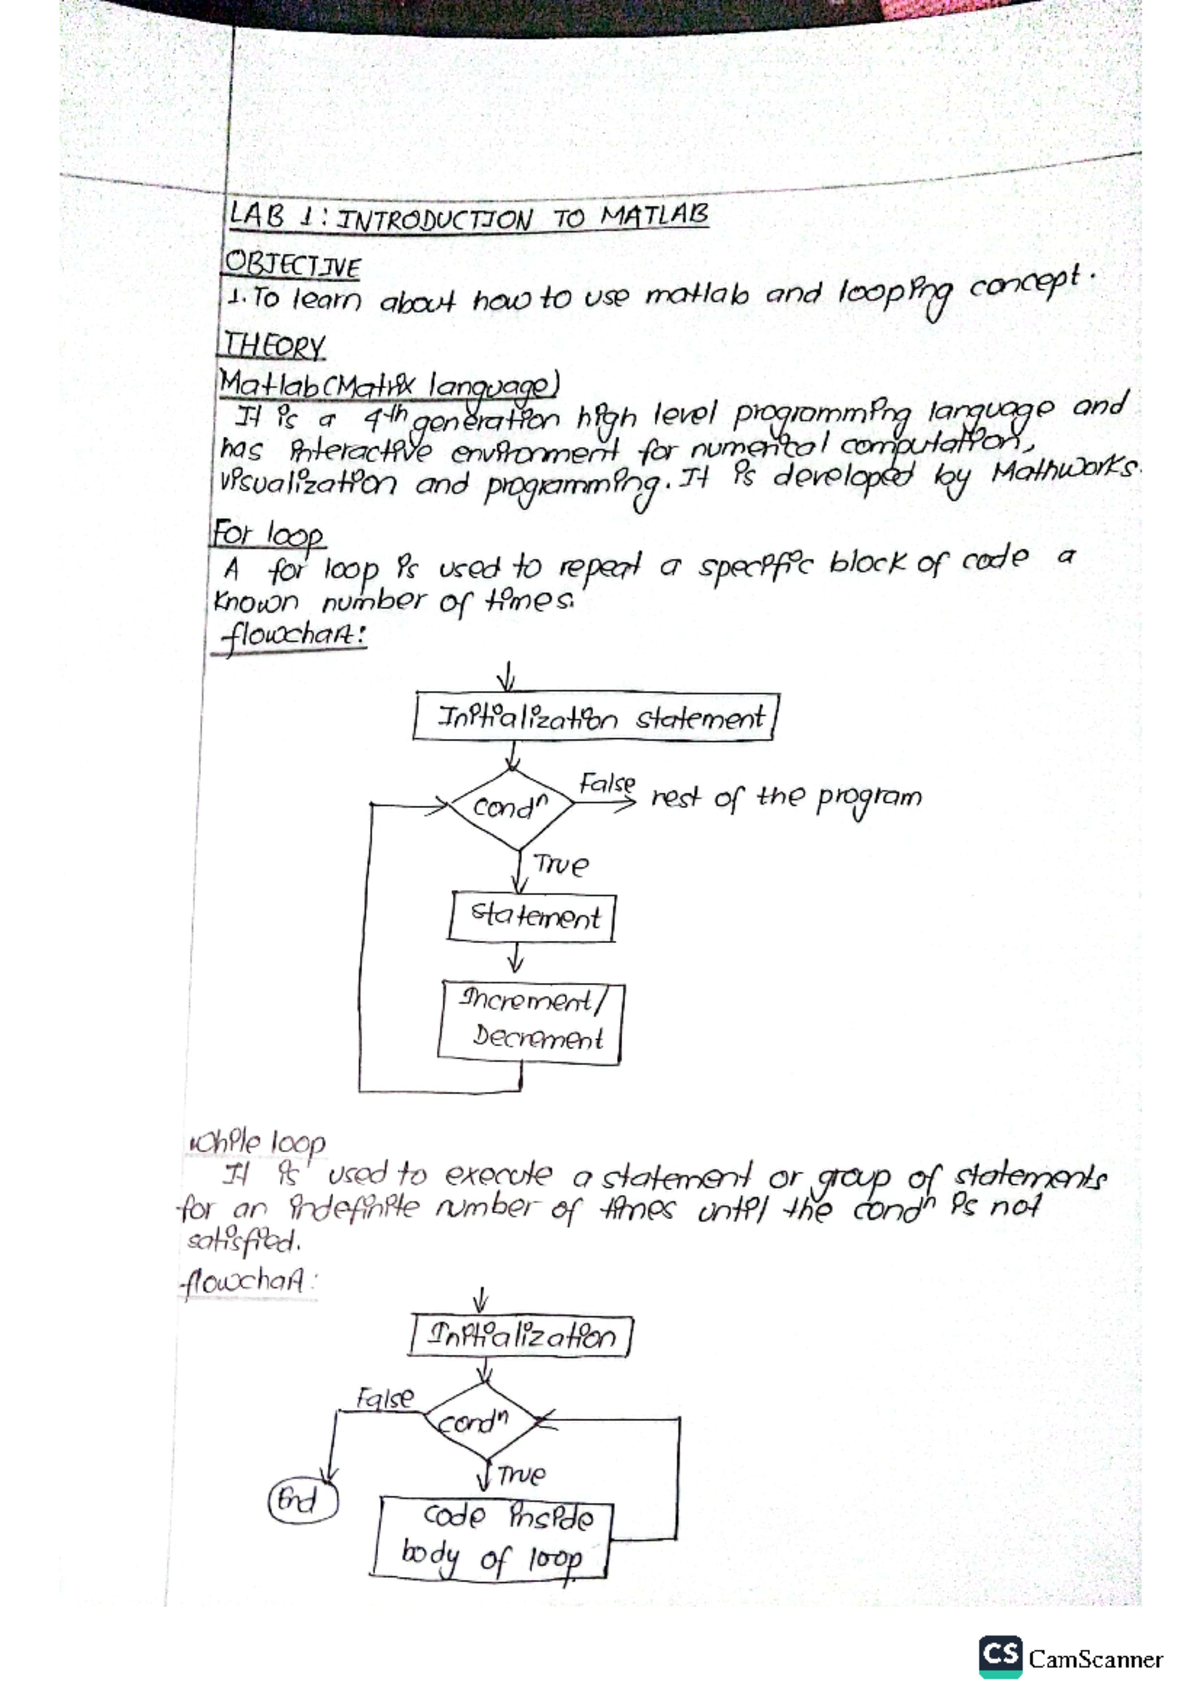 LAB 1: INTRODUCTION TO MATLAB
OBJECTIVE
1. To learn about how to use matlab and looping concept.
THEORY
Matlab (Matrix language)
It is a 4th generation high level programming language and
has interactive environment for numerical computation,
visualization and programming. It is developed by Mathworks.
For loop
A for loop is used to repeat a specific block of code a
known number of times.
flowchart:
Initialization statement
condⁿ
False
rest of the program
True
statement
Increment/
Decrement
While loop
It is used to execute a statement or group of statements
for an indefinite number of times until the condⁿ is not
satisfied.
flowchart:
Initialization
False
condⁿ
True
End
code inside
body of loop
CS CamScanner